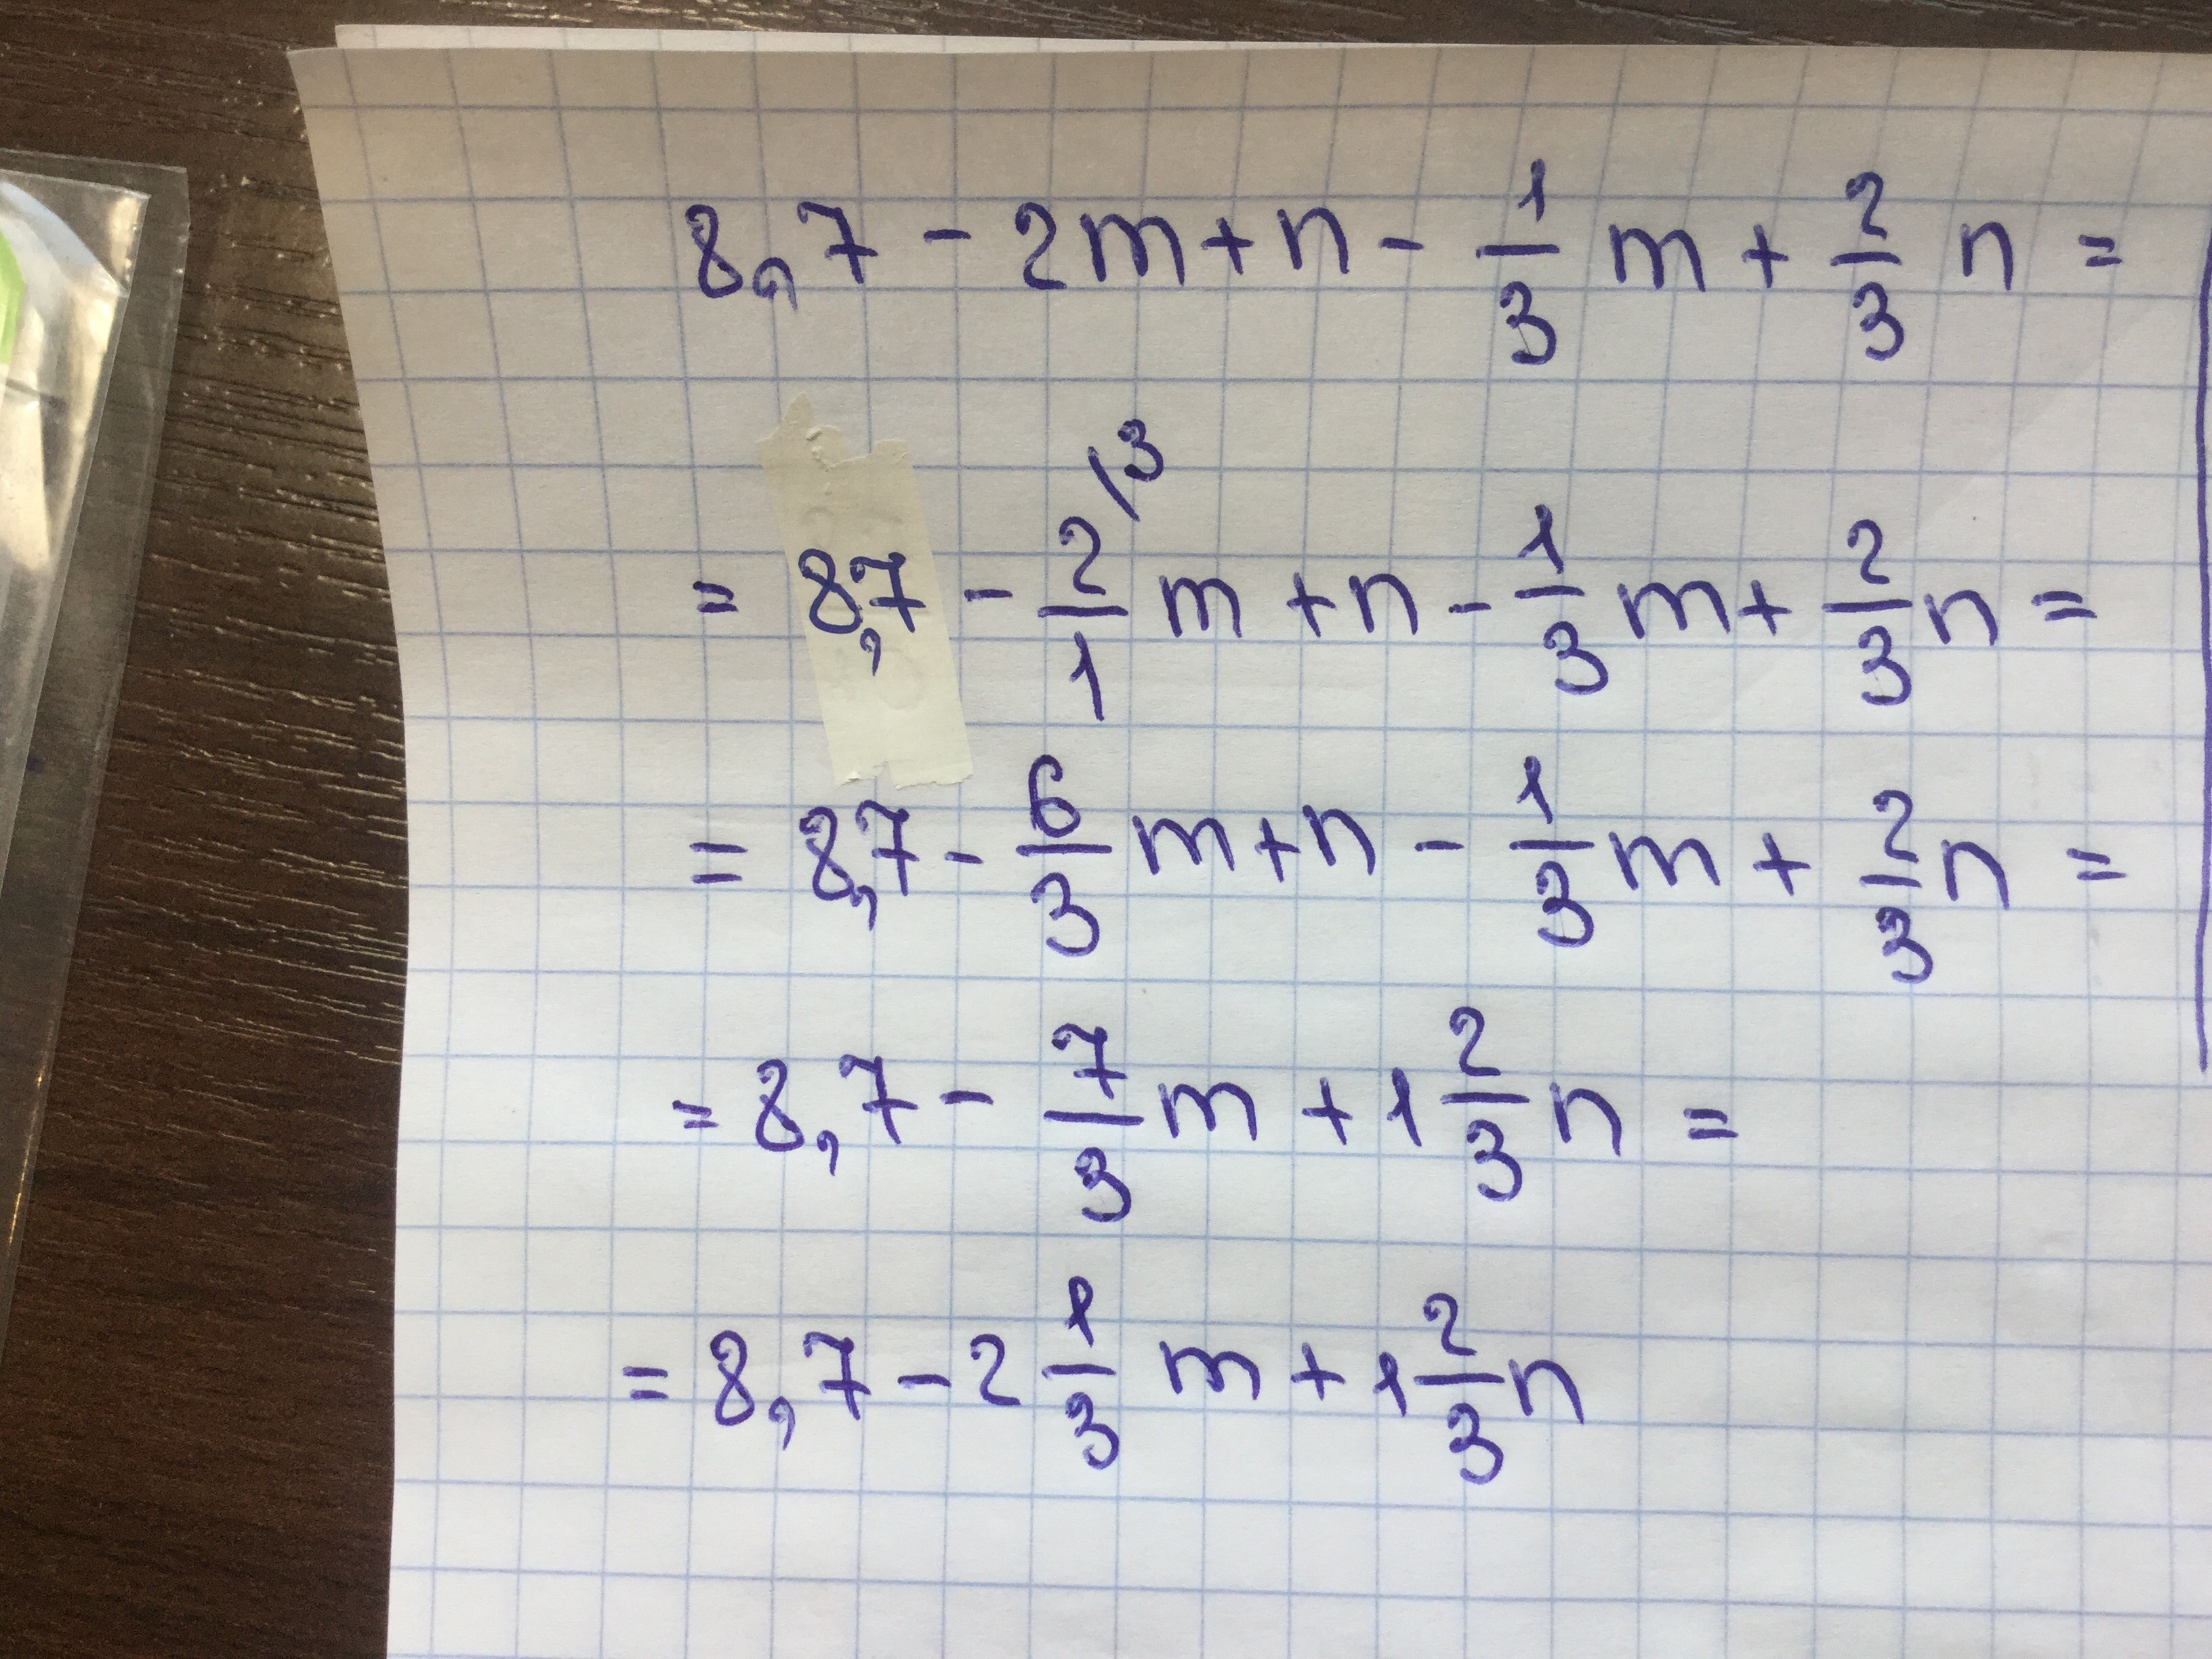 8,7 - 2m + n - 1/3 m + 2/3 n =
= 8,7 - 2/1 \3 m + n - 1/3 m + 2/3 n =
= 8,7 - 6/3 m + n - 1/3 m + 2/3 n =
= 8,7 - 7/3 m + 1 2/3 n =
= 8,7 - 2 1/3 m + 1 2/3 n